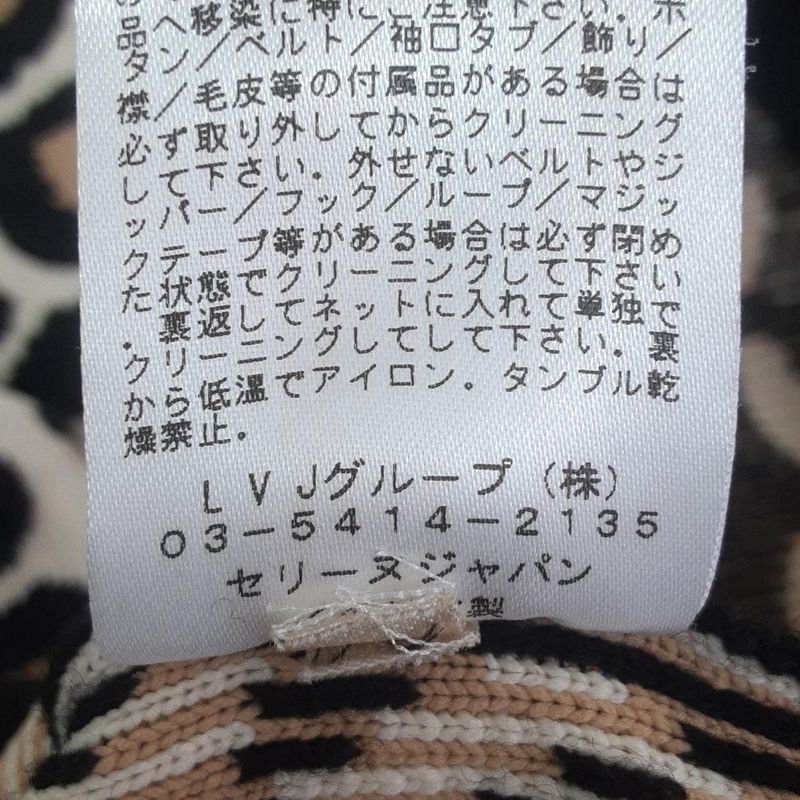 の品へ移染に特にご注意下さい.ボ
タン/ベルト/袖口タブ/飾り/
襟/毛皮等の付属品がある場合は
必ず取り外してからクリーニング
して下さい.外せないベルトやジ
ッパー/フック/ループ/マジッ
クテープ等がある場合は必ず閉め
た状態でクリーニングして下さい
.裏返してネットに入れて単独で
クリーニングしてして下さい.裏
から低温でアイロン。タンブル乾
燥禁止.
LVJグループ(株)
03-5414-2135
セリーヌジャパン
製